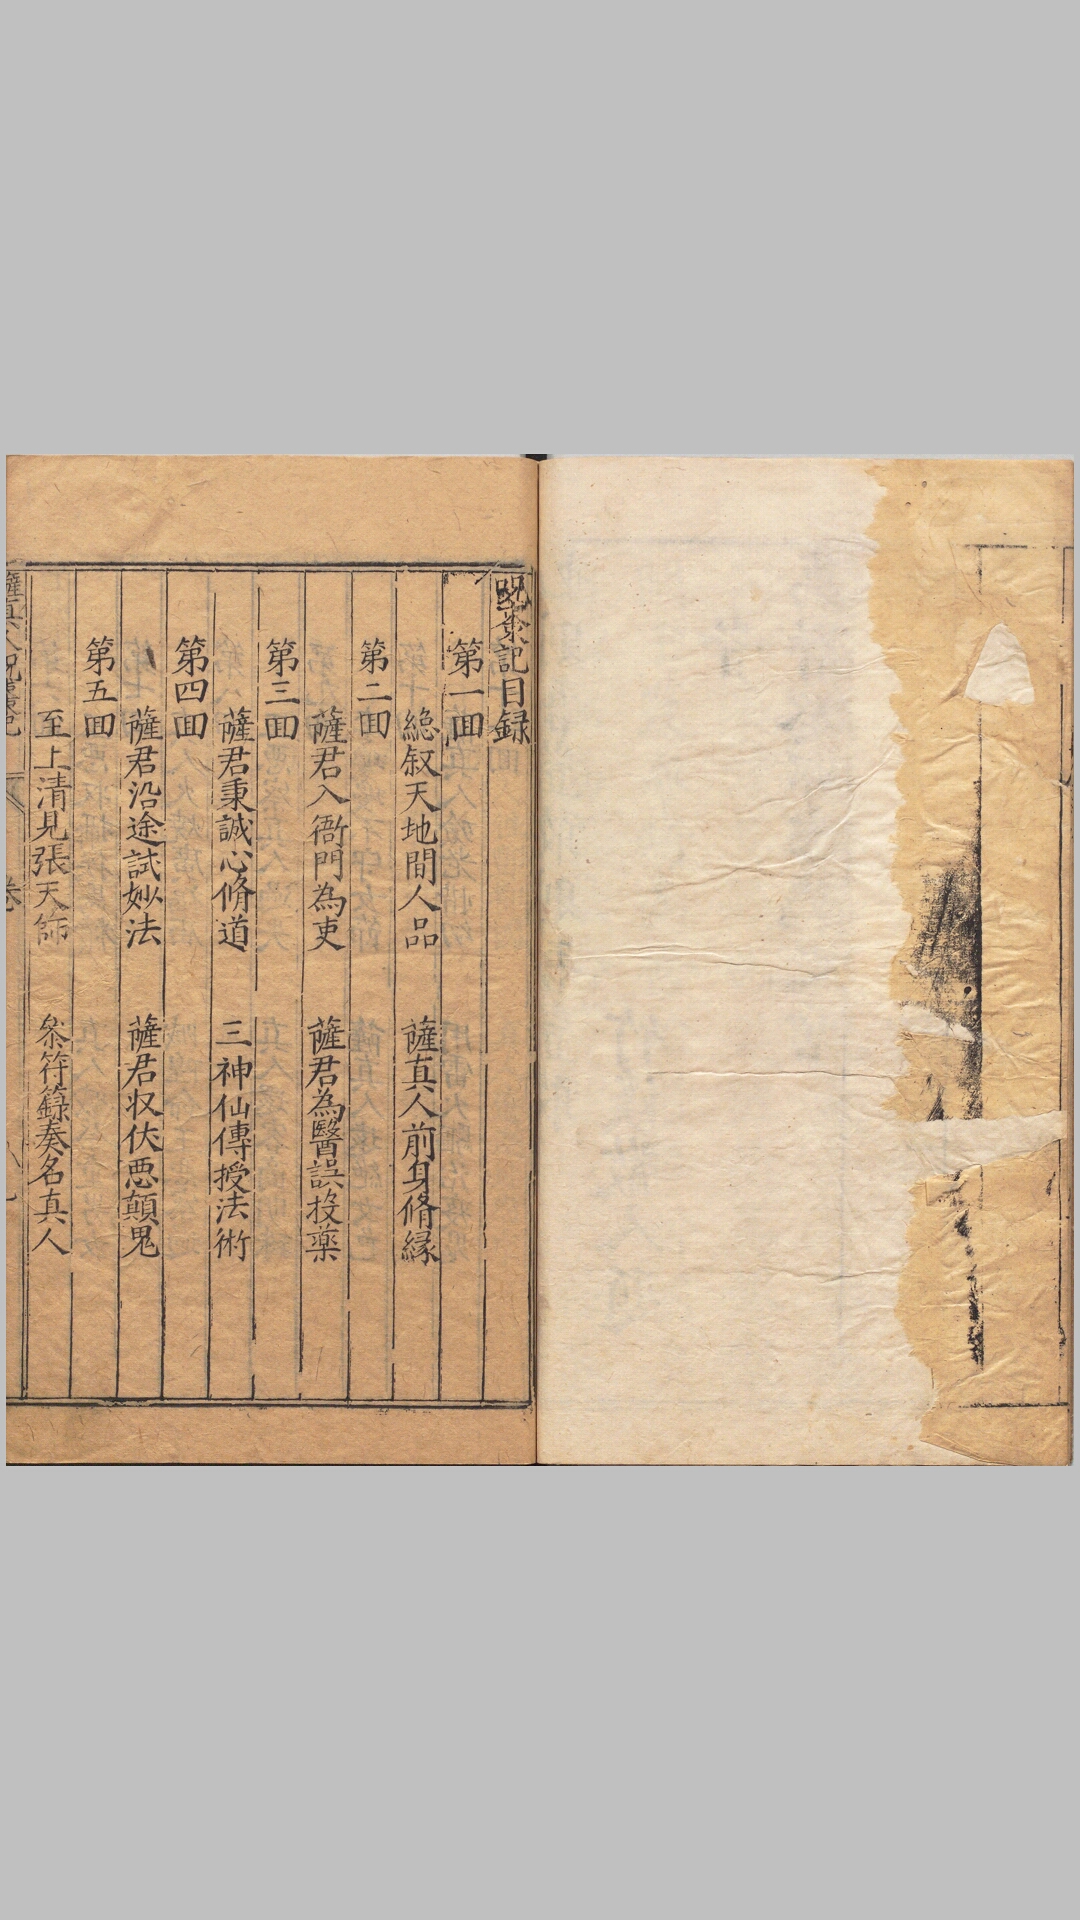 呪棗記目録
第一囬
緫叙天地間人品　薩真人前身脩縁
第二囬
薩君入衙門為吏　薩君為醫誤投藥
第三囬
薩君秉誠心脩道　三神仙傳授法術
第四囬
薩君沿途試妙法　薩君収伏惡顛鬼
第五囬
至上清見張天師　叅符籙奏名真人
薩真人呪棗記
卷